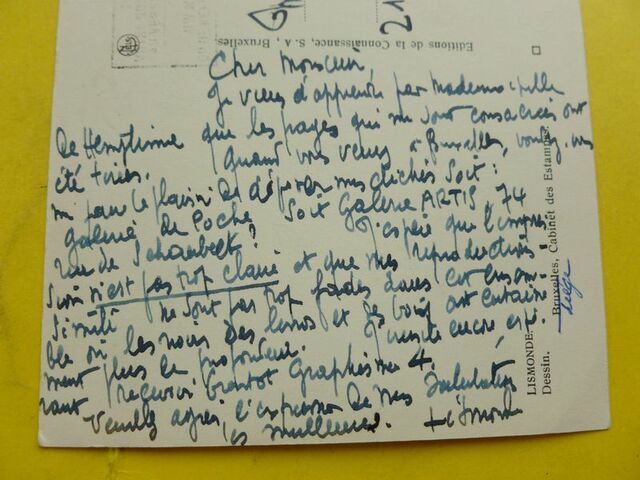 21
Editions de la Connaissance, S. A., Bruxelles.
Cher Monsieur,
Je viens d'apprendre par Mademoiselle
de Hemptinne que les pages qui me sont consacrées ont
été tirées. Quand vous venez à Bruxelles, voulez-vous
me faire le plaisir de déposer mes clichés soit :
Galerie de Poche soit Galerie ARTIS, 74
rue de Schaerbeek ? J'espère que l'impres-
sion n'est pas trop claire et que mes reproductions
simili ne sont pas trop fades dans cet ensem-
ble où les noirs des linos et de bois ont certaine-
ment plus de profondeur. Je reste encore, espé-
rant recevoir bientôt Graphismes 4.
Veuillez agréer, l'expression de mes salutations
les meilleures. Lismonde
LISMONDE. — Bruxelles, Cabinet des Estampes.
Dessin.
Liège